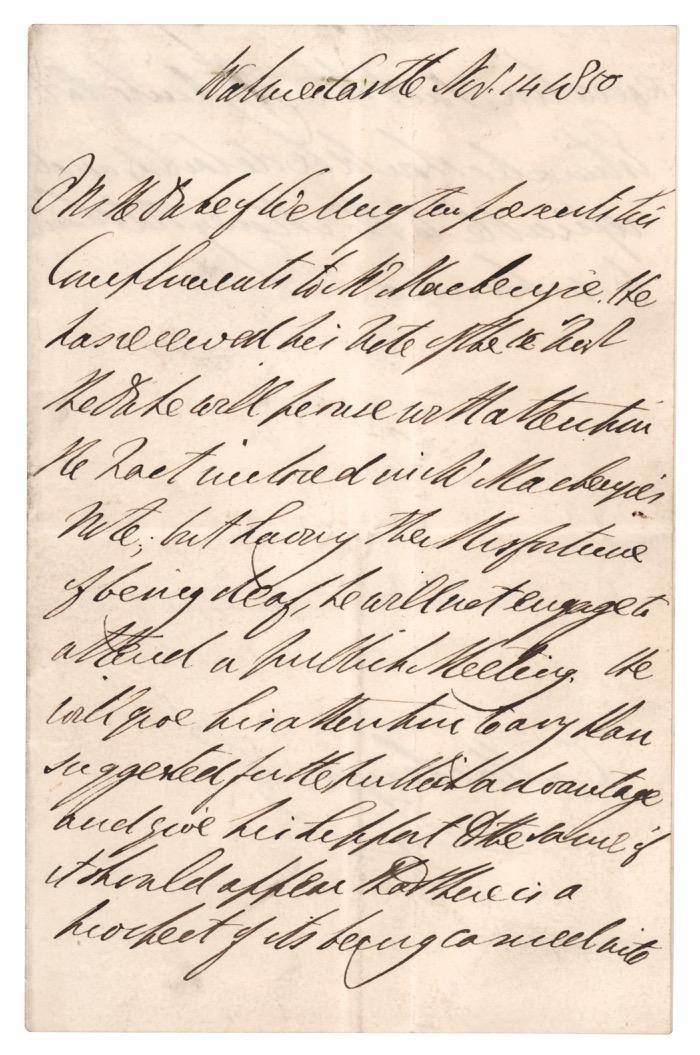 Walmer Castle Nov. 14 1850
F M the Duke of Wellington presents his
Compliments to Mr Mackenzie. He
has received his Note of the 12 Inst
The Duke will peruse with attention
the Tract inclosed in Mr Mackenzie's
Note; but having the Misfortune
of being deaf, he will not engage to
attend a publick Meeting. He
will give his attention to any Plan
suggested for the publick advantage
and give his support to the same if
it should appear that there is a
prospect of its being carried into